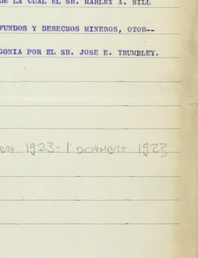 DE LA CUAL EL SR. HARLEY A. SILL
FUNDOS Y DERECHOS MINEROS, OTOR--
GONIA POR EL SR. JOSE E. TRUMBLEY.
1923-1 DICIEMBRE 1923